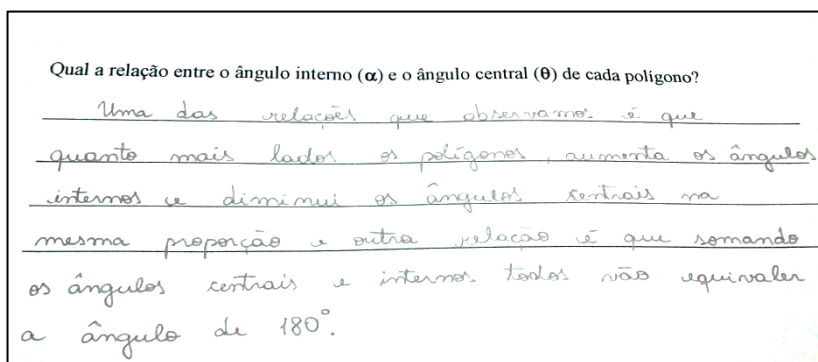 Qual a relação entre o ângulo interno (α) e o ângulo central (θ) de cada polígono?
Uma das relações que observamos é que
quanto mais lados os polígonos, aumenta os ângulos
internos e diminui os ângulos centrais na
mesma proporção e outra relação é que somando
os ângulos centrais e internos todos vão equivaler
a ângulo de 180°.